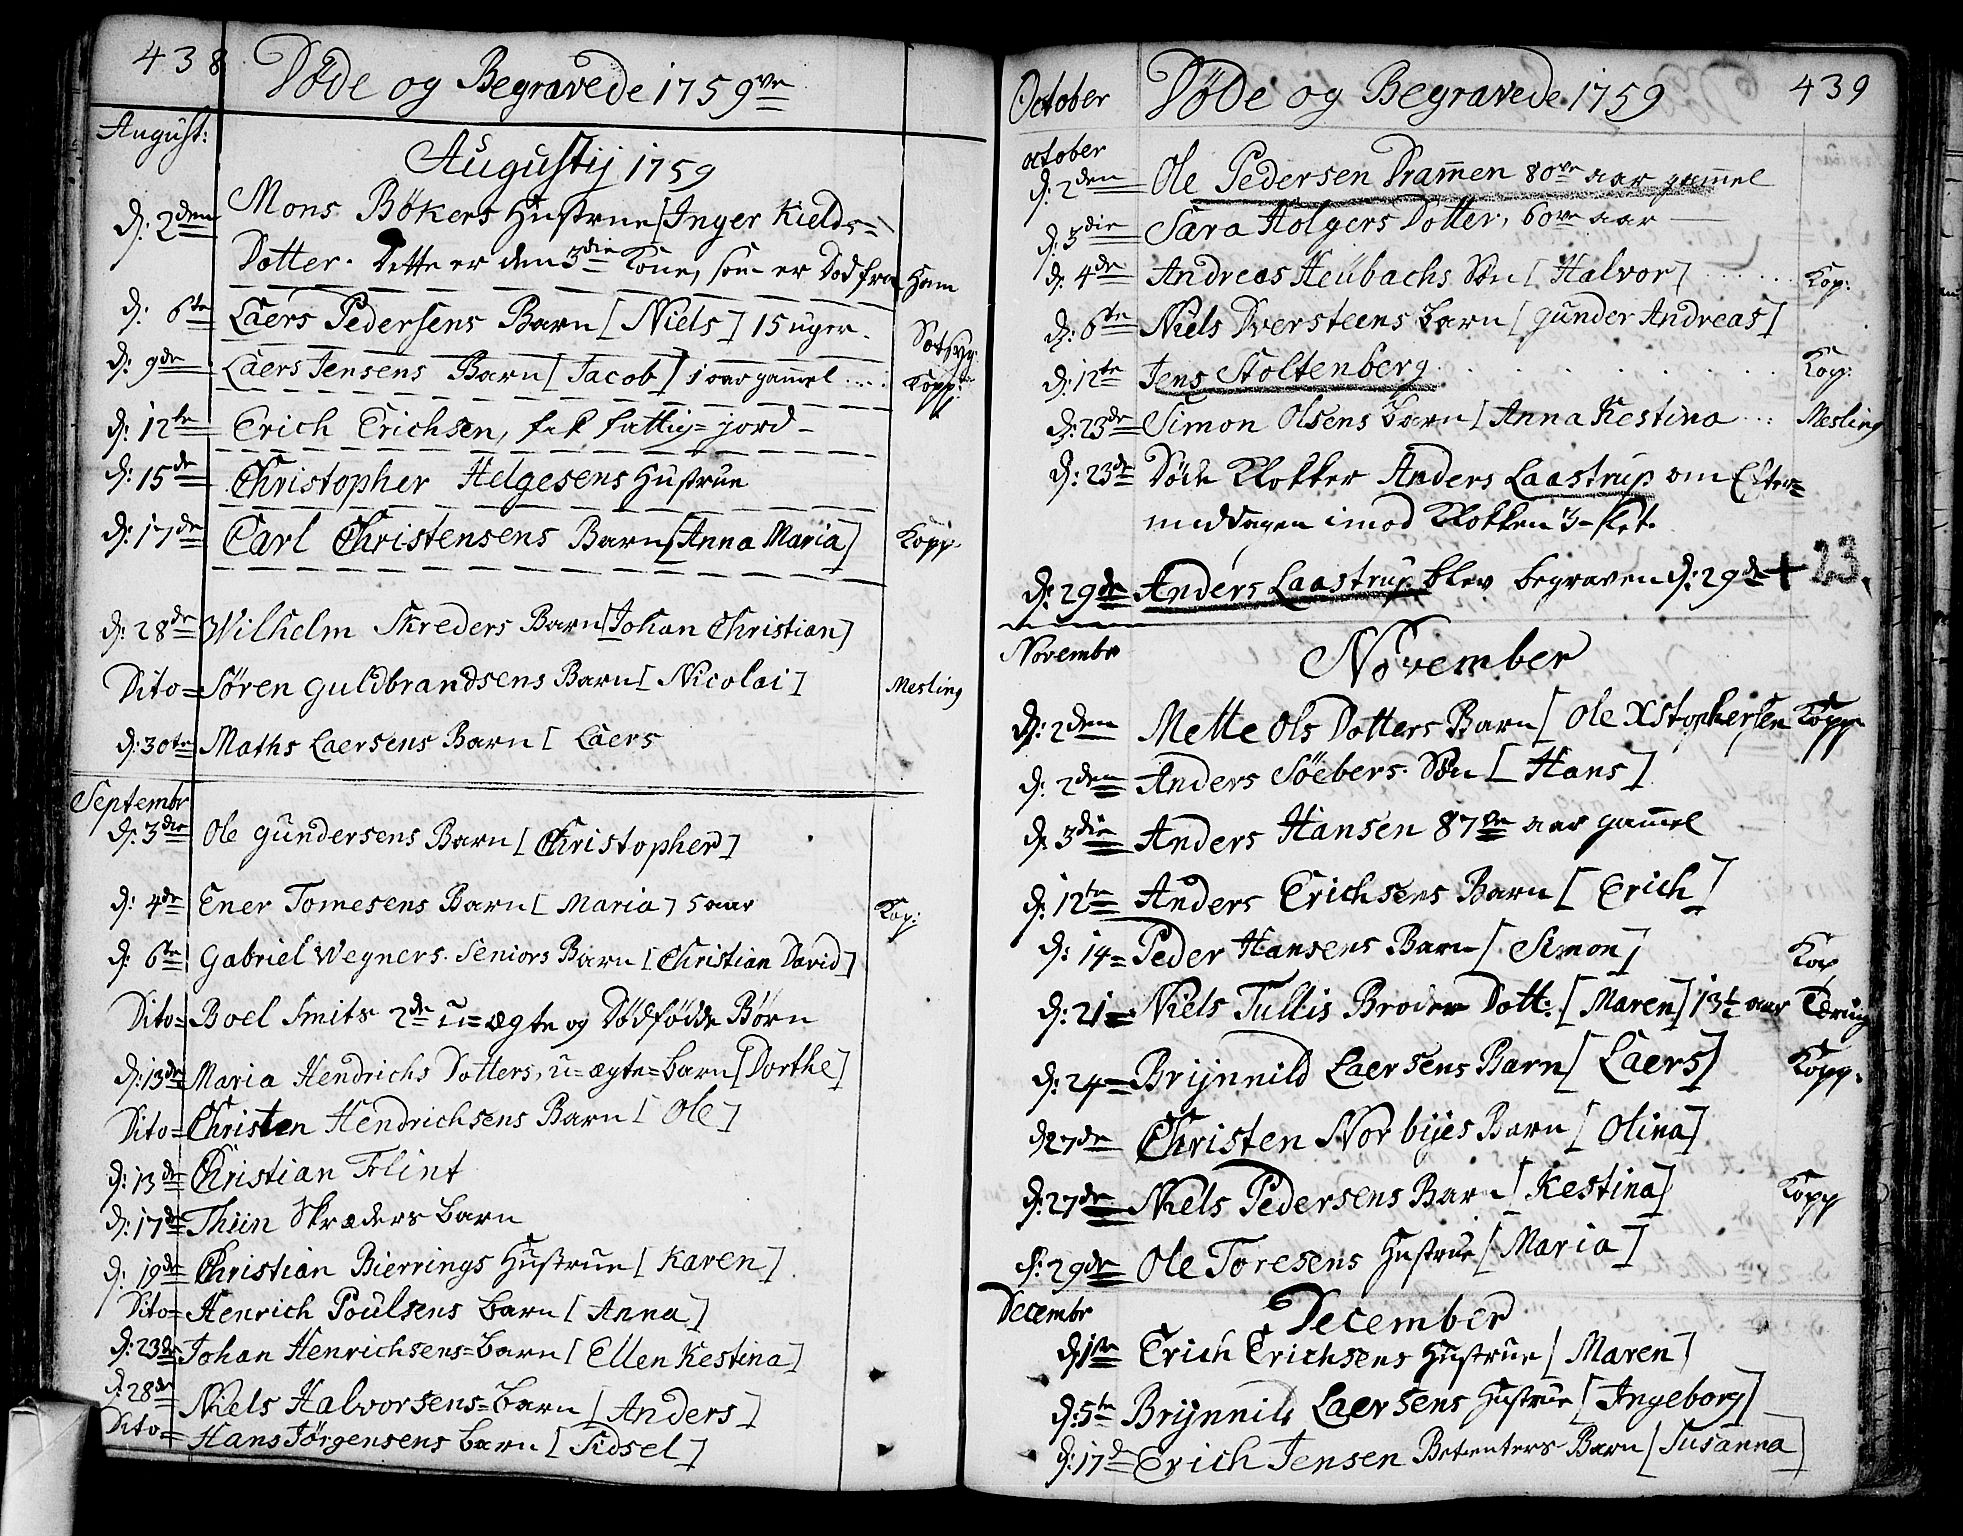 438
Døde og Begravede 1759ve
August:
Augustij 1759
d: 2den Mons. Bøkers Hustrue [Inger Kields=
Dotter. Dette er den 3die Kone, som er Død fra Ham
d: 6te Laers Pedersens Barn [Niels] 15 uger.
d: 9de Laers Jensens Barn [Jacob] 1 aar gam̄el .... Kopp:
d: 12te Erich Erichsen, fik fattig= jord -
d: 15de Christopher Helgesens Hustrue
d: 17de Carl Christensens Barn [Anna Maria] Kopp.
d: 28de Wilhelm Skreders Barn [Johan Christian]
Dito= Søren Guldbrandsens Barn [Nicolai] Mesling
d: 30te Maths Laersens Barn [Laers
Septembr
d: 3die Ole Gundersens Barn [Christopher]
d: 4de Ener Tomesens Barn [Maria] 5 aar Kop:
d: 6te Gabriel Wegners. Seniors Barn [Christian David]
Dito= Boel Smits 2de U=ægte og Dødfødde Børn
d: 13de Maria Hendrichs Dotters, u=ægte=Barn [Dorthe]
Dito= Christen Hendrichsens Barn [Ole]
d: 13de Christian Flint
d: 17de Thiin Skræders Barn
d: 19de Christian Bierrings Hustrue [Karen]
Dito= Henrich Poulsens Barn [Anna]
d: 23de Johan Henrichsens=Barn [Ellen Kestina]
d: 28de Niels Halvorsens=Barn [Anders]
Dito= Hans Jørgensens Barn [Sidsel]
October Døde og Begravede 1759 439
october
d: 2den Ole Pedersen Dram̄en 80ve aar gam̄el
d: 3die Sara Holgers Dotter, 60ve aar
d: 4de Andreas Heübachs Søn [Halvor] ..... Kop:
d: 6te Niels Dversteens Barn [Gunder Andreas]
d: 12te Jens Stoltenberg ........ Kop:
d: 23de Simon Olsens Barn [Anna Kestina ... Mesling
d: 23de Døde Klokker Anders Laastrup om Efter=
middagen imod Klokken 3-slet.
d: 29de Anders Laastrup blev begraven d: 29de + 23.
Novembr
November
d: 2den Mette Ols Dotters Barn [Ole Xstophersen Kopp
d: 2den Anders Söebers. Søn [Hans]
d: 3die Anders Hansen 87ve aar gam̄el
d: 12te Anders Erichsens Barn [Erich]
d: 14= Peder Hansens Barn [Simon] Kop
d: 21= Niels Tullis Broder Dott: [Maren] 13½ aar
d: 24= Brijnnild Laersens Barn [Laers] Kopp.
d 27de Christen Norbijes Barn [Olina]
d: 27de Niels Pedersens Barn [Kestina] Kopp
d: 29de Ole Toresens Hustrue [Maria]
Decembr
December
d 1ste Erich Erichsens Hustrue [Maren]
d: 5te Brijnnild Laersens Hustrue [Ingeborg]
d: 17d Erich Jensen Betienters Barn [Susanna]